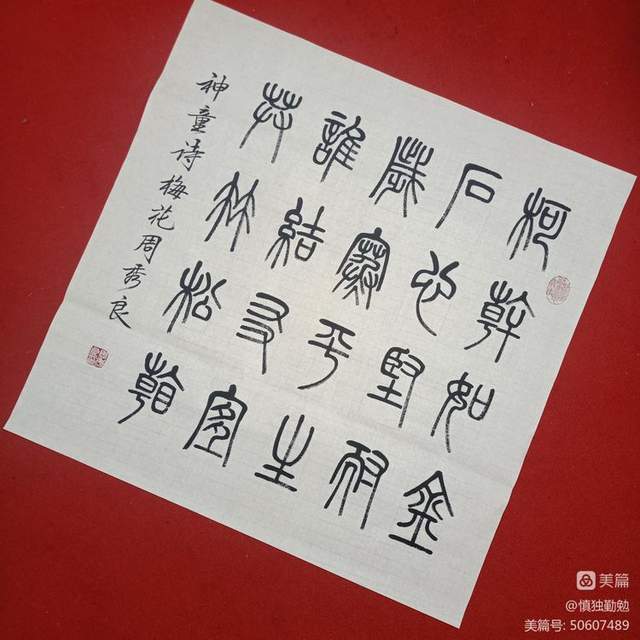 柯幹如金
石心堅耐
歲寒平生
誰結友宜
共竹松看
神童诗梅花周秀良
美篇
@慎独勤勉
美篇号: 50607489